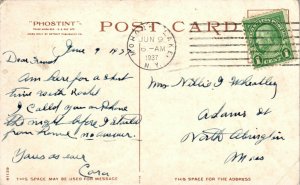 "PHOSTINT"
POST CARD
JUN 9
6-AM
1937
N.Y.
June 9 1937
Dear Friend
Am here for a short
time with Ruth
I called you on Phone
the night before I started
from home no answer.
Yours as ever
Cora
Mrs. Nellie J Wheatley
Adams St
North Abington
Mass
THIS SPACE MAY BE USED FOR MESSAGE
THIS SPACE FOR ADDRESS ONLY